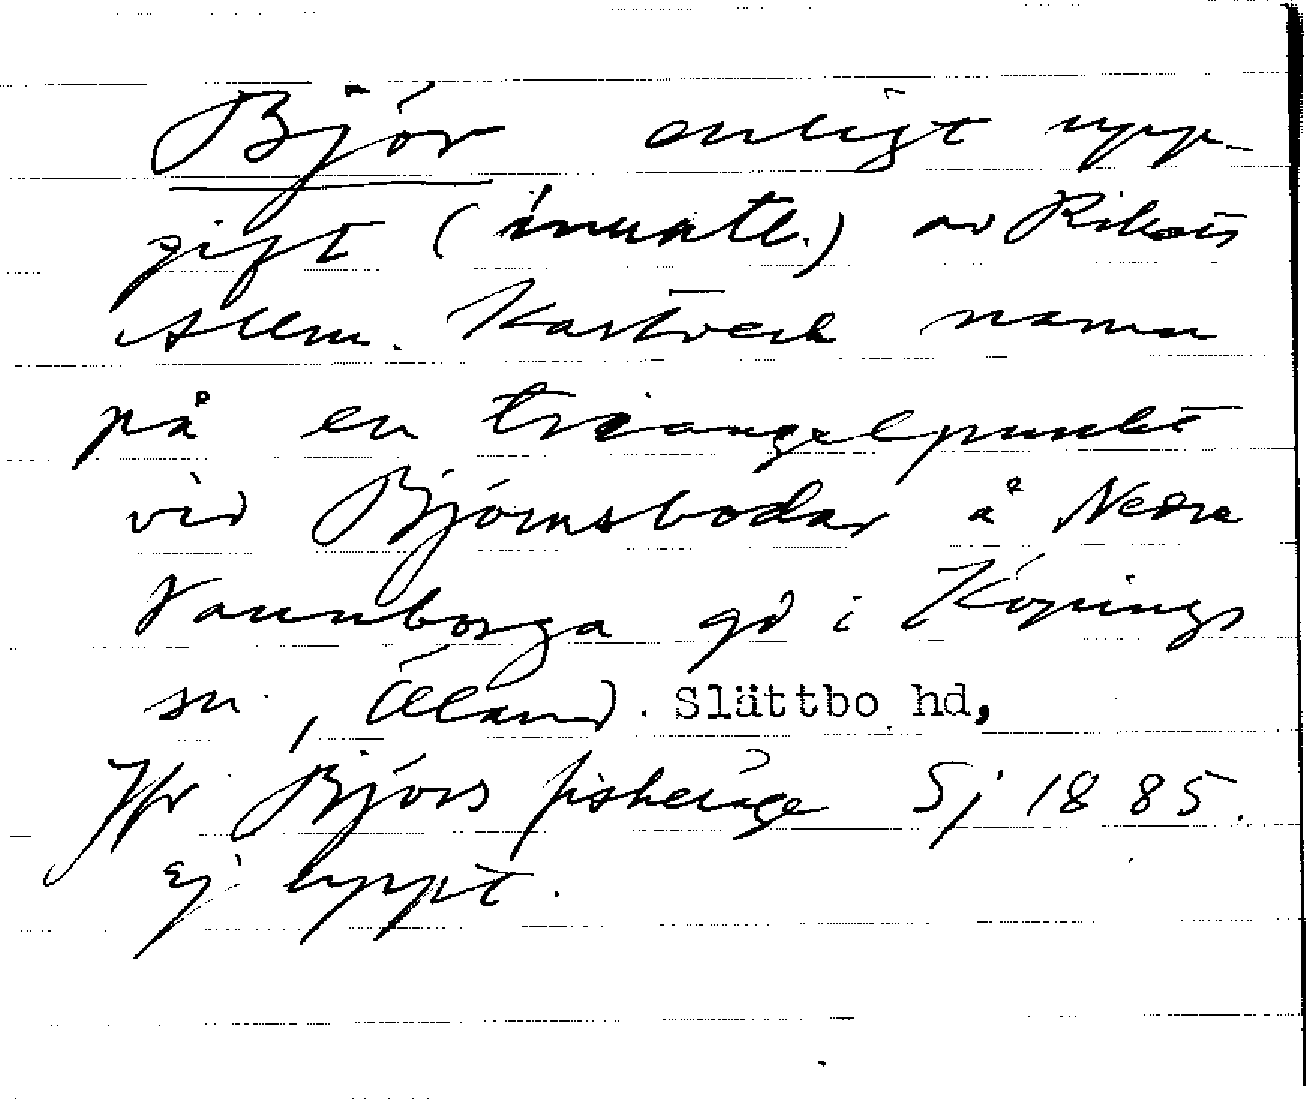 Björ enligt upp-
gift (muntl.) av Rikets
Allm. Kartverk namn
på en triangelpunkt
vid Björnsbodar å Nedre
Vannborga gd i Köpings
sn, Öland. Slättbo hd,
Jfr Björs fiskeläge Sj 1885.
ej uppt.